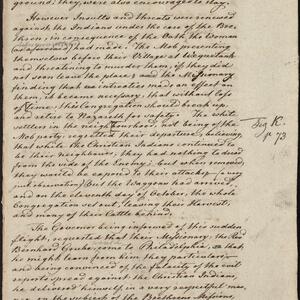 ground; they were also encouraged to stay.
However Insults and Threats were renewed
against the Indians under the care of the Bre-
thren in consequence of the Oath, the Woman
aforementioned had made. The Mob presenting
themselves before their Village at Wequetank
and threatening to murder them, if they did
not soon leave the place; and the Missionary
finding that no intreaties made an effect on
them, it became necessary, that without loss
of time this Congregation should break up
and retire to Nazareth for safety. The white
settlers in the neighbourhood, not being of the
Mob party, regretted their departure, believing
that while the Christian Indians continued to
be their neighbours, they had nothing to dread
from the side of the Enemy; but when removed,
they would be exposed to their attacks
just observation! But the Waggons had arrived,
and on the eleventh day of October, the whole
Congregation set out, leaving their Harvest,
and many of their Cattle behind.
The Governor being informed of this sudden
flight, requested that their Missionary the Rev.
Bernhard Grube, come to Philadelphia, so that
he might learn from him they particulars;
and being convinced of the falsity of the evil
reports spread against the Christian Indians,
he delivered himself, in a very respectful man-
ner, on the subject of the Brethrens Missions,
p. 73